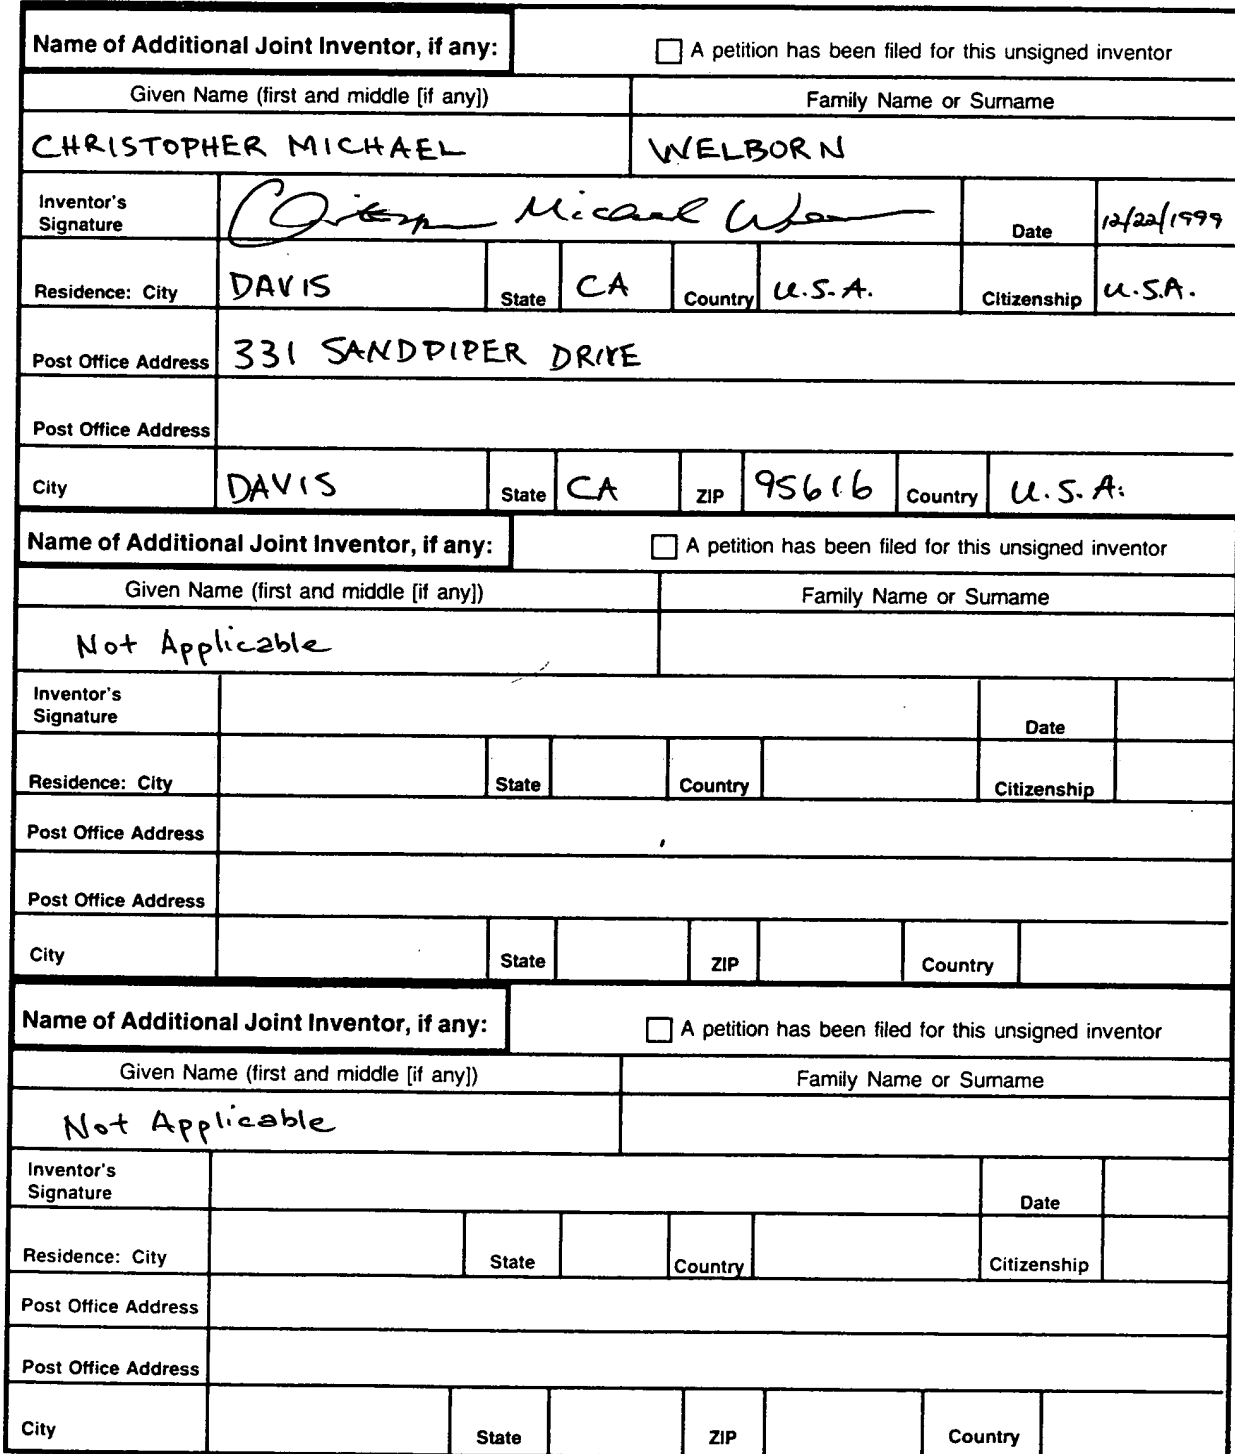 Name of Additional Joint Inventor, if any: ☐ A petition has been filed for this unsigned inventor
Given Name (first and middle [if any]) Family Name or Surname
CHRISTOPHER MICHAEL WELBORN
Inventor's
Signature Michael Date 12/22/1999
Residence: City DAVIS State CA Country U.S.A. Citizenship U.S.A.
Post Office Address 331 SANDPIPER DRIVE
Post Office Address
City DAVIS State CA ZIP 95616 Country U.S.A.
Name of Additional Joint Inventor, if any: ☐ A petition has been filed for this unsigned inventor
Given Name (first and middle [if any]) Family Name or Surname
Not Applicable
Inventor's
Signature Date
Residence: City State Country Citizenship
Post Office Address
Post Office Address
City State ZIP Country
Name of Additional Joint Inventor, if any: ☐ A petition has been filed for this unsigned inventor
Given Name (first and middle [if any]) Family Name or Surname
Not Applicable
Inventor's
Signature Date
Residence: City State Country Citizenship
Post Office Address
Post Office Address
City State ZIP Country